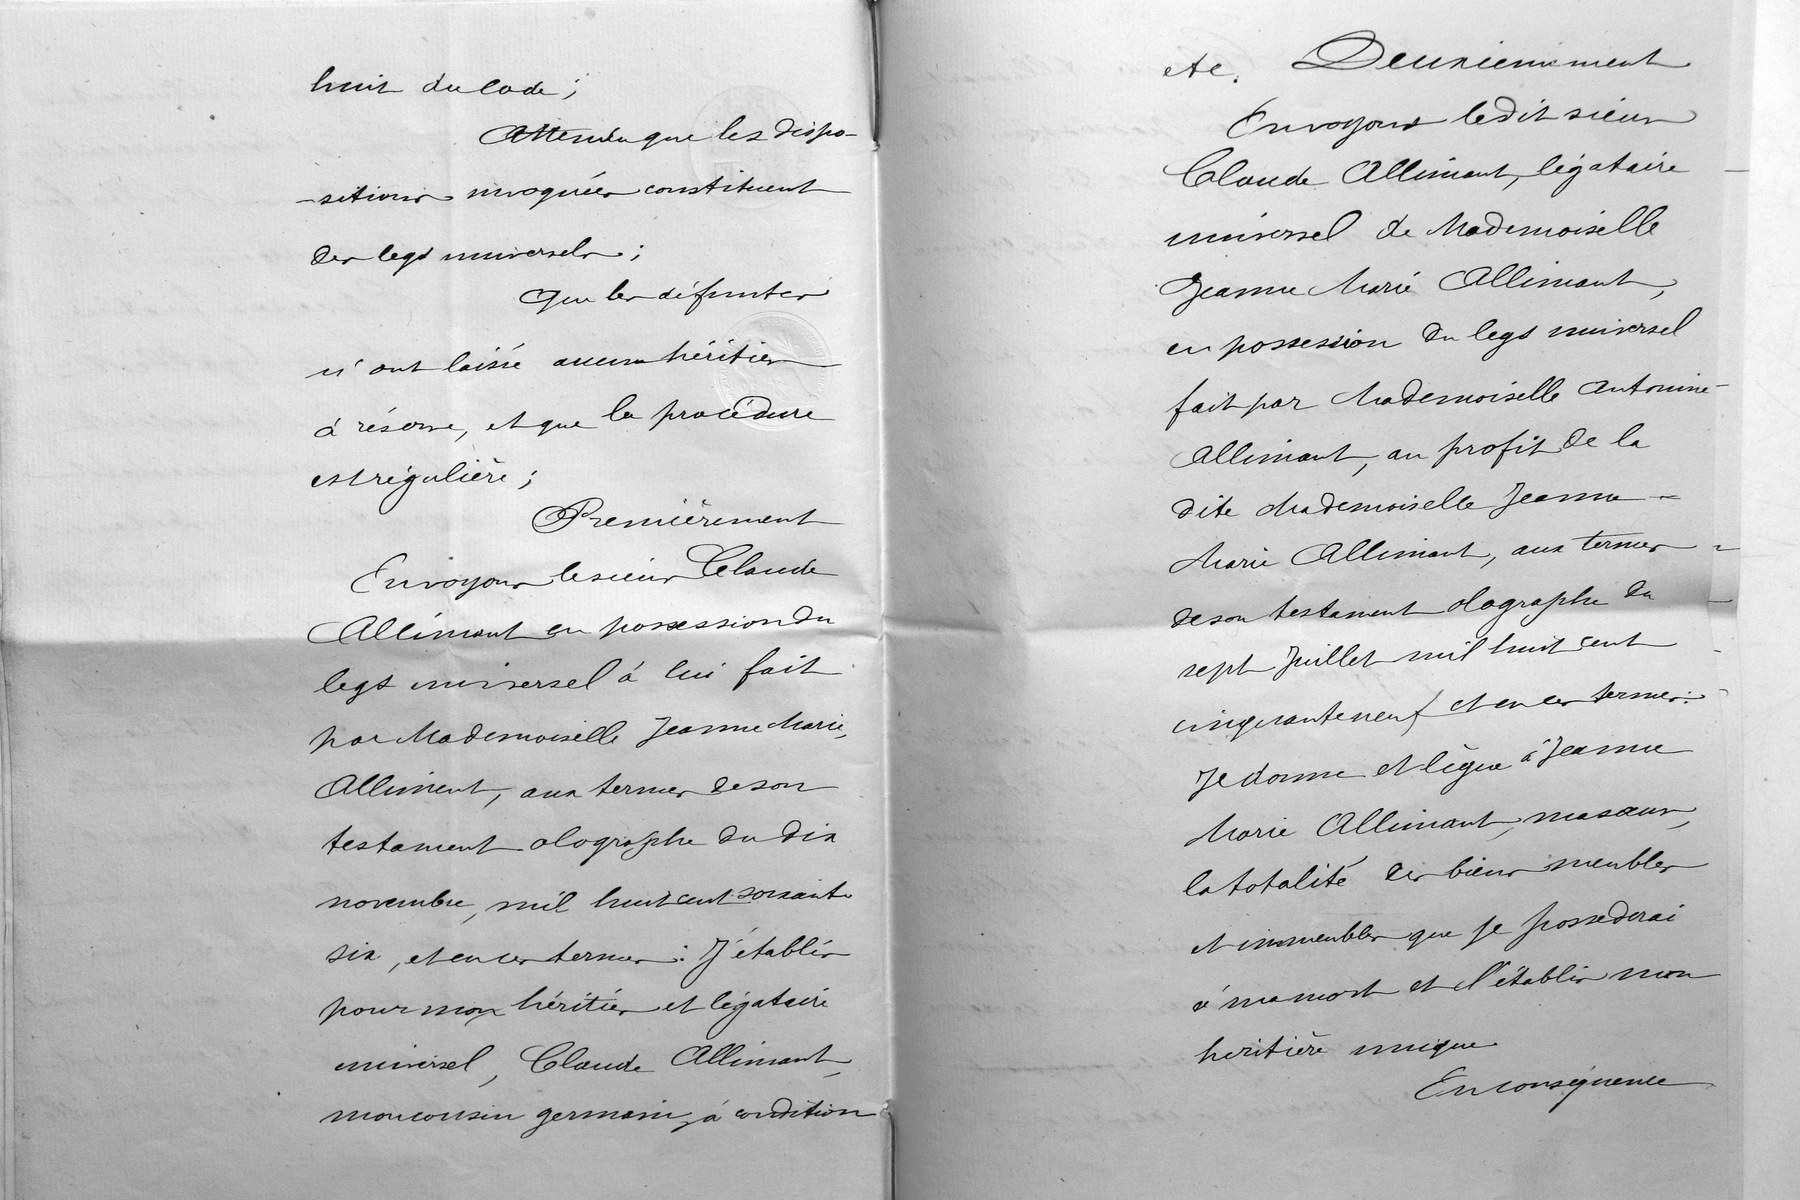 huit du code ;
Attendu que les dispo-
-sitions invoquées constituent
des legs universels ;
Que les défuntes
n'ont laissé aucun héritier
à réserve, et que la procédure
est régulière ;
Premièrement
Envoyons le sieur Claude
Allimant en possession du
legs universel à lui fait
par Mademoiselle Jeanne Marie
Alliment, aux termes de son
testament olographe du dix
novembre, mil huit cent soixante
six, et en ces termes : J'établis
pour mon héritier et légataire
universel, Claude Allimant,
mon cousin germain, à condition
etc. Deuxièmement
Envoyons ledit sieur
Claude Allimant, légataire
universel de Mademoiselle
Jeanne Marie Allimant,
en possession du legs universel
fait par Mademoiselle Antoinine
Allimant, au profit de la
dite Mademoiselle Jeanne
Marie Allimant, aux termes
de son testament olographe du
sept Juillet mil huit cent
cinquante neuf et en ces termes :
Je donne et lègue à Jeanne
Marie Allimant, ma sœur,
la totalité des biens meubles
et immeubles que je possederai
à ma mort et l'établis mon
heritière unique
En conséquence